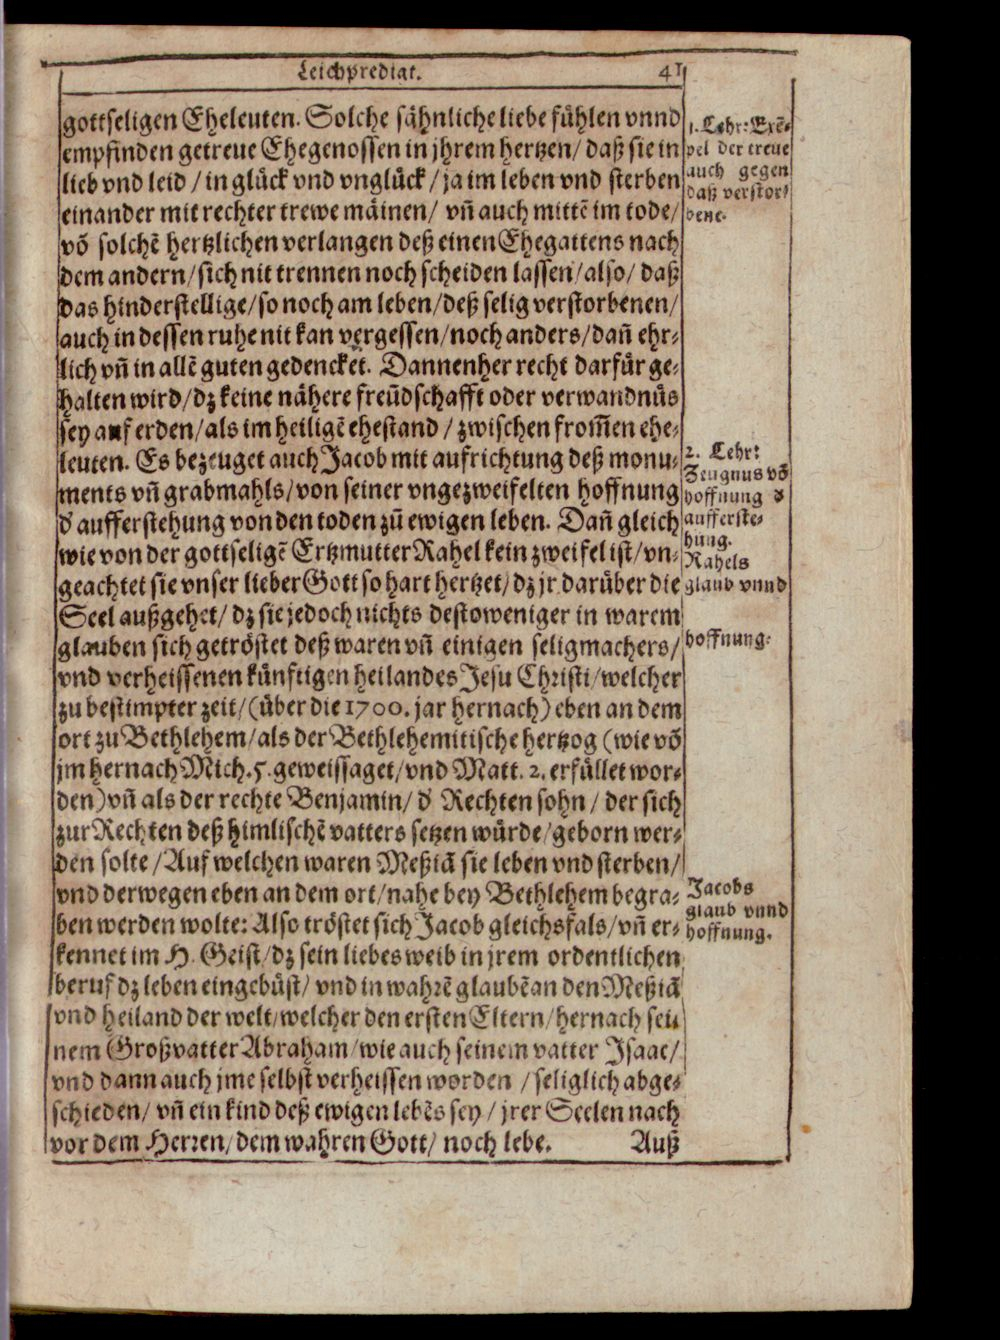 Leichpredigt. 41
gottseligen Eheleuten. Solche sähnliche liebe fühlen vnnd
empfinden getreue Ehegenossen in jhrem hertzen/ daß sie in
lieb vnd leid / in glück vnd vnglück / ja im leben vnd sterben
einander mit rechter trewe mäinen/ vñ auch mittē im tode/
vō solchē hertzlichen verlangen deß einen Ehegattens nach
dem andern/ sich nit trennen noch scheiden lassen/ also/ daß
das hinderstellige/ so noch am leben/ deß selig verstorbenen/
auch in dessen ruhe nit kan vergessen/ noch anders/ dañ ehr⸗
lich vñ in allē guten gedencket. Dannenher recht darfür ge⸗
halten wird/ dz keine nähere freūdschafft oder verwandnüs
sey auf erden/ als im heiligē ehestand / zwischen from̃en ehe⸗
leuten. Es bezeuget auch Jacob mit aufrichtung deß monu⸗
ments vñ grabmahls/ von seiner vngezweifelten hoffnung
d' aufferstehung von den toden zū ewigen leben. Dañ gleich
wie von der gottseligē Ertzmutter Rahel kein zweifel ist/ vn⸗
geachtet sie vnser lieber Gott so hart hertzet/ dz jr darüber die
Seel außgehet/ dz sie jedoch nichts destoweniger in warem
glauben sich getröstet deß waren vñ einigen seligmachers/
vnd verheissenen künftigen heilandes Jesu Christi/ welcher
zu bestimpter zeit/ (über die 1700. jar hernach) eben an dem
ort zu Bethlehem/ als der Bethlehemitische hertzog (wie vō
jm hernach Mich. 5. geweissaget/ vnd Matt. 2. erfüllet wor⸗
den) vñ als der rechte Benjamin/ d' Rechten sohn / der sich
zur Rechten deß himlischē vatters setzen würde/ geborn wer⸗
den solte / Auf welchen waren Meßiā sie leben vnd sterben/
vnd derwegen eben an dem ort/ nahe bey Bethlehem begra⸗
ben werden wolte: Also tröstet sich Jacob gleichsfals/ vñ er⸗
kennet im H. Geist/ dz sein liebes weib in jrem ordentlichen
beruf dz leben eingebüst/ vnd in wahrē glaubē an den Meßiā
vnd heiland der welt/ welcher den ersten Eltern/ hernach sei⸗
nem Großvatter Abraham/ wie auch seinem vatter Isaac/
vnd dann auch jme selbst verheissen worden / seliglich abge⸗
schieden/ vñ ein kind deß ewigen lebēs sey / jrer Seelen nach
vor dem Herren/ dem wahren Gott/ noch lebe. Auß
1. Lehr: Exē⸗
pel der treue
auch gegen
daß verstor⸗
bene.
2. Lehr:
Zeugnus vō
hoffnung d'
aufferste⸗
hung.
Rahels
glaub vnnd
hoffnung.
Jacobs
glaub vnnd
hoffnung.